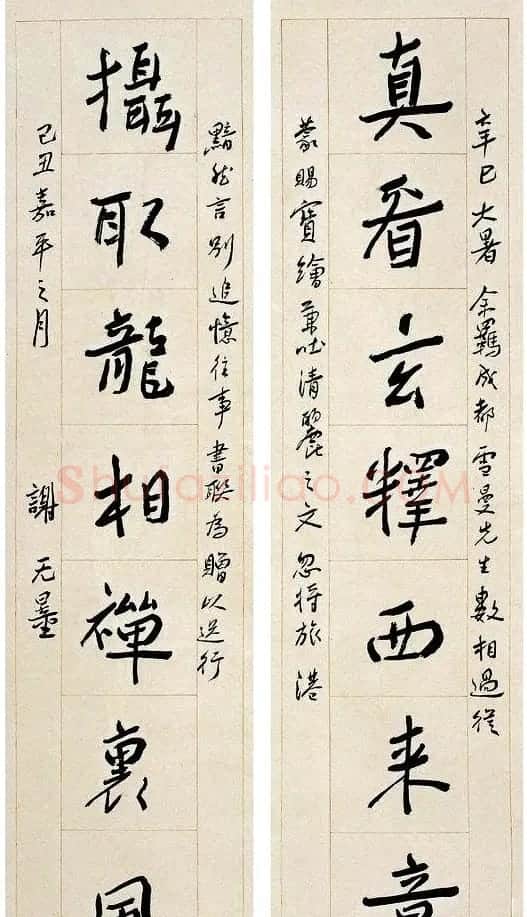 辛巳大暑余羈成都雪曼先生數相過從
真看玄釋西来
蒙賜寶繪兼吐清麗之文忽将旅港
黯然言別追憶往事書聯為贈以送行
攝取龍相禪裏
己丑嘉平之月 謝无量
Shufaziliao.COM